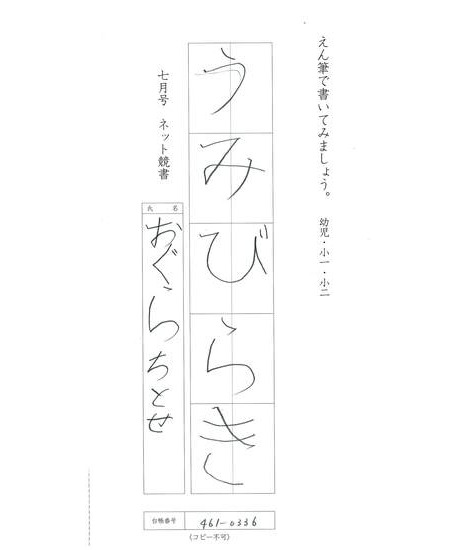 えん筆で書いてみましょう。
幼児・小一・小二
うみびらき
七月号 ネット競書
氏名
おぐらちとせ
台帳番号 461-0336
(コピー不可)